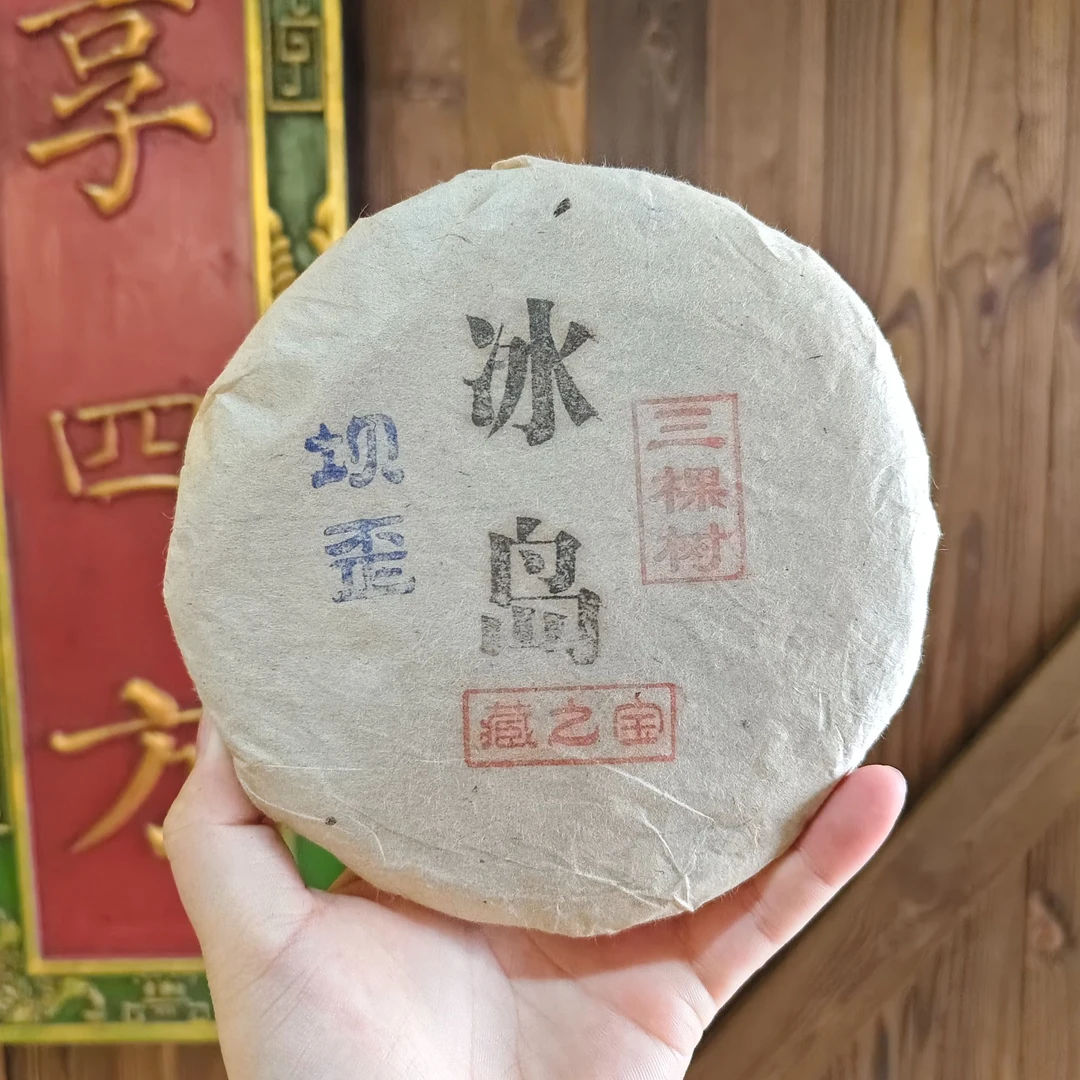 享四方
冰岛
坝歪
三棵树
藏之宝